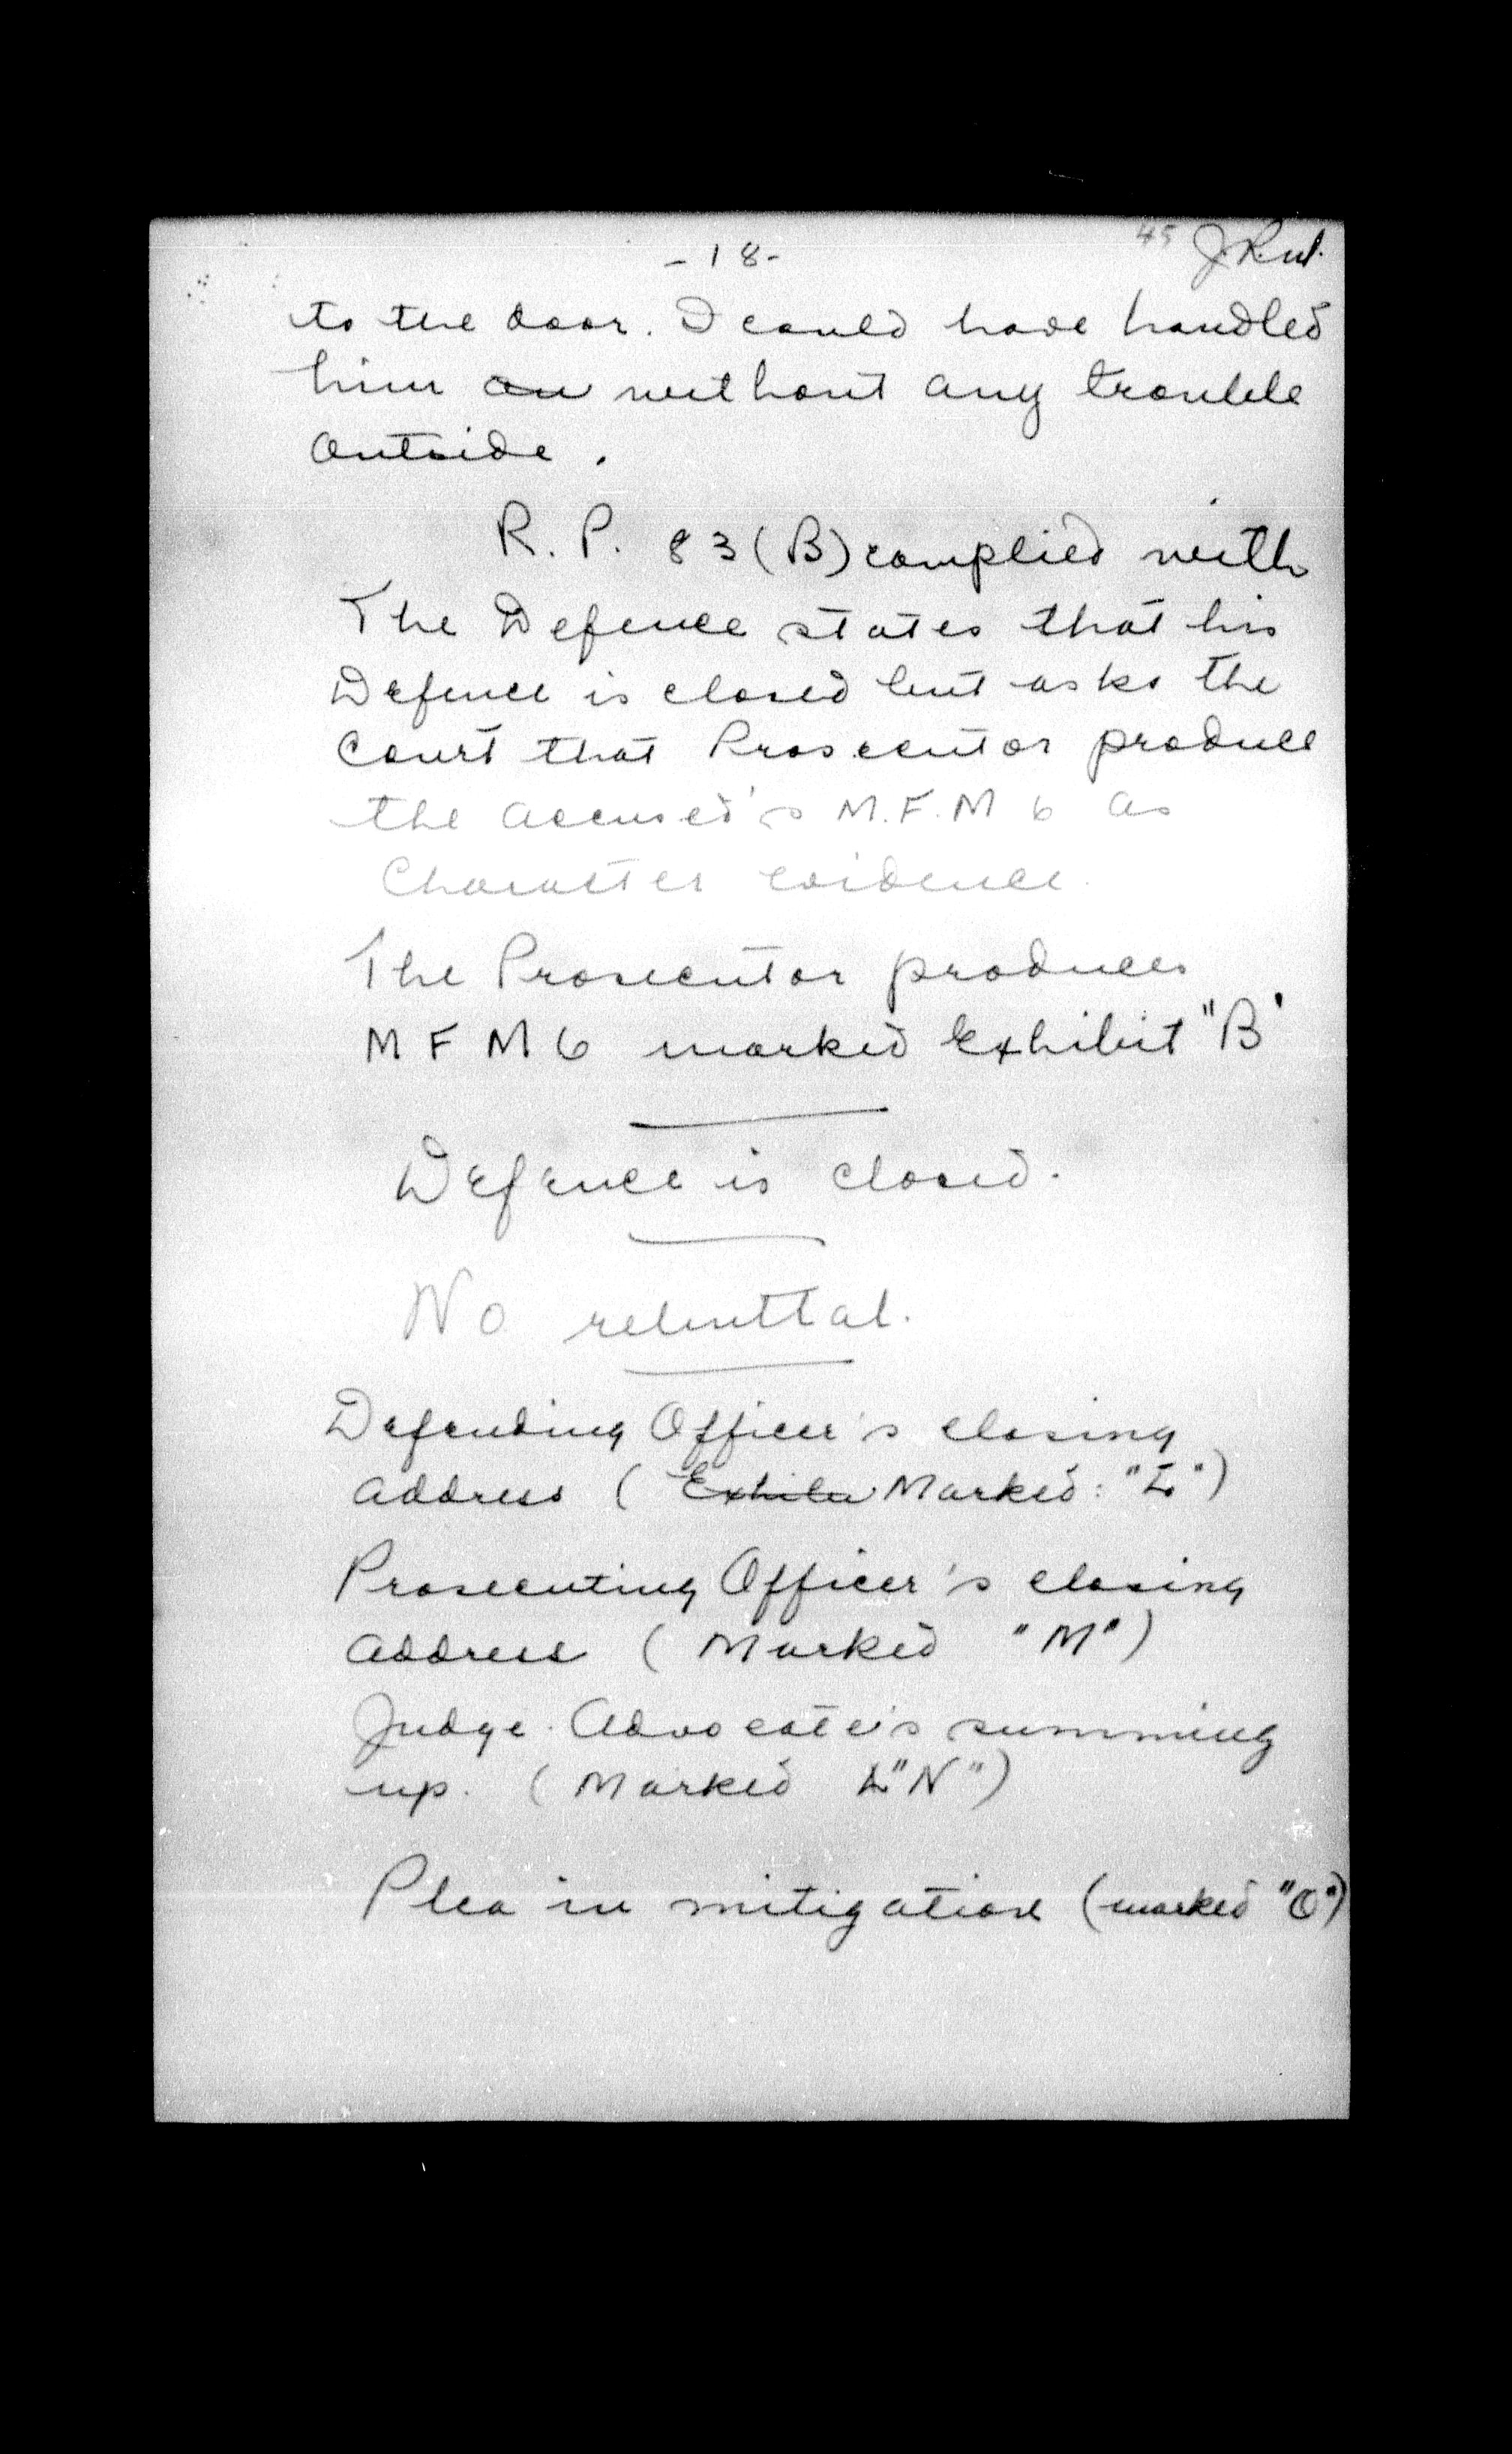 -18-
45
to the door. I could have handled
him an without any trouble
outside.
R. P. 83 (B) complied with
The Defence states that his
Defence is closed but asks the
Court that Prosecutor produce
the accused's M.F.M 6 as
Character evidence.
The Prosecutor produces
M F M 6 marked Exhibit "B"
Defence is closed.
No rebuttal.
Defending Officer's closing
address ( Exhibi Marked: "L")
Prosecuting Officer's closing
address ( Marked "M")
Judge Advocate's summing
up. ( Marked L "N")
Plea in mitigation (marked "O")